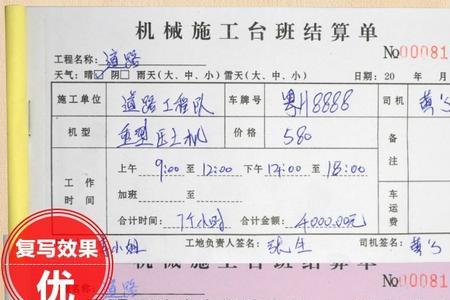 机械施工台班结算单
工程名称: 道路 No 00081
天气: 晴 阴 雨天(大、中、小) 雷天(大、中、小) 日期: 20 年 月
施工单位 道路工程队 车牌号 粤A8888 司机 黄
机型 重型压土机 价格 580 备注
工作时间 上午 9:00 至 12:00 下午 14:00 至 18:00
加班 至 车运费
合计时间: 7个小时 合计金额: 4000.00元
小姐 工地负责人签名: 张生 司机签名: 黄
复写效果
优
机械施工台班结算单
工程名称: 道路 No 00081
雨天(大、中、小) 雷天(大、中、小) 日期: 20 年 月